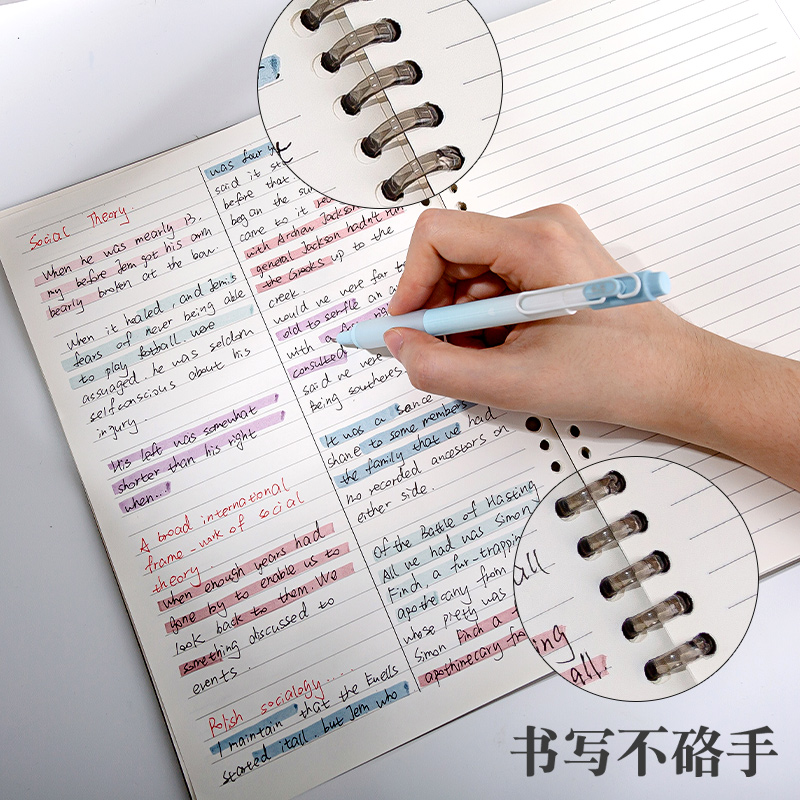 Social Theory.
When he was mearly 13.
my before Jem got his arm
bearly broken at the bow.
When it healed, and Jem.s
fears of never being able
to play football. were
assuaged. he was seldom
selfconscious about his
injury.
His left was somewhat
shorter than his right
when...
A broad international
frame-work of social
theory.
When enough years had
gone by to enable us to
look back to them. We
something discussed to
events.
Polish socialogy....
I maintain that the Euells
started itall. but Jem who
was four
said it
before that.
began the
came to it
with Archew Jackson
general Jackson hadn't run
the Creeks up to the
creek.
would we were far
old to serfle an
with a
consulted
said we were
Being southeres.
It was a sance
shane to some members
the family that we had
no recorded ancestors on
either side.
Of the Battle of Hasting
All we had was Simon
Finch, a fur-trapping
apothecary from
whose piety was
Simon Finch a
apothinecary fro
all
ing
all.
书写不硌手